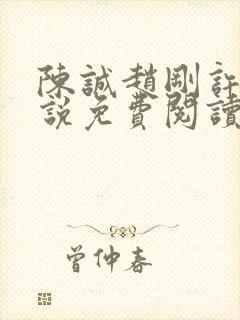 陳誠趙剛許
說免費閱讀
曾仲春